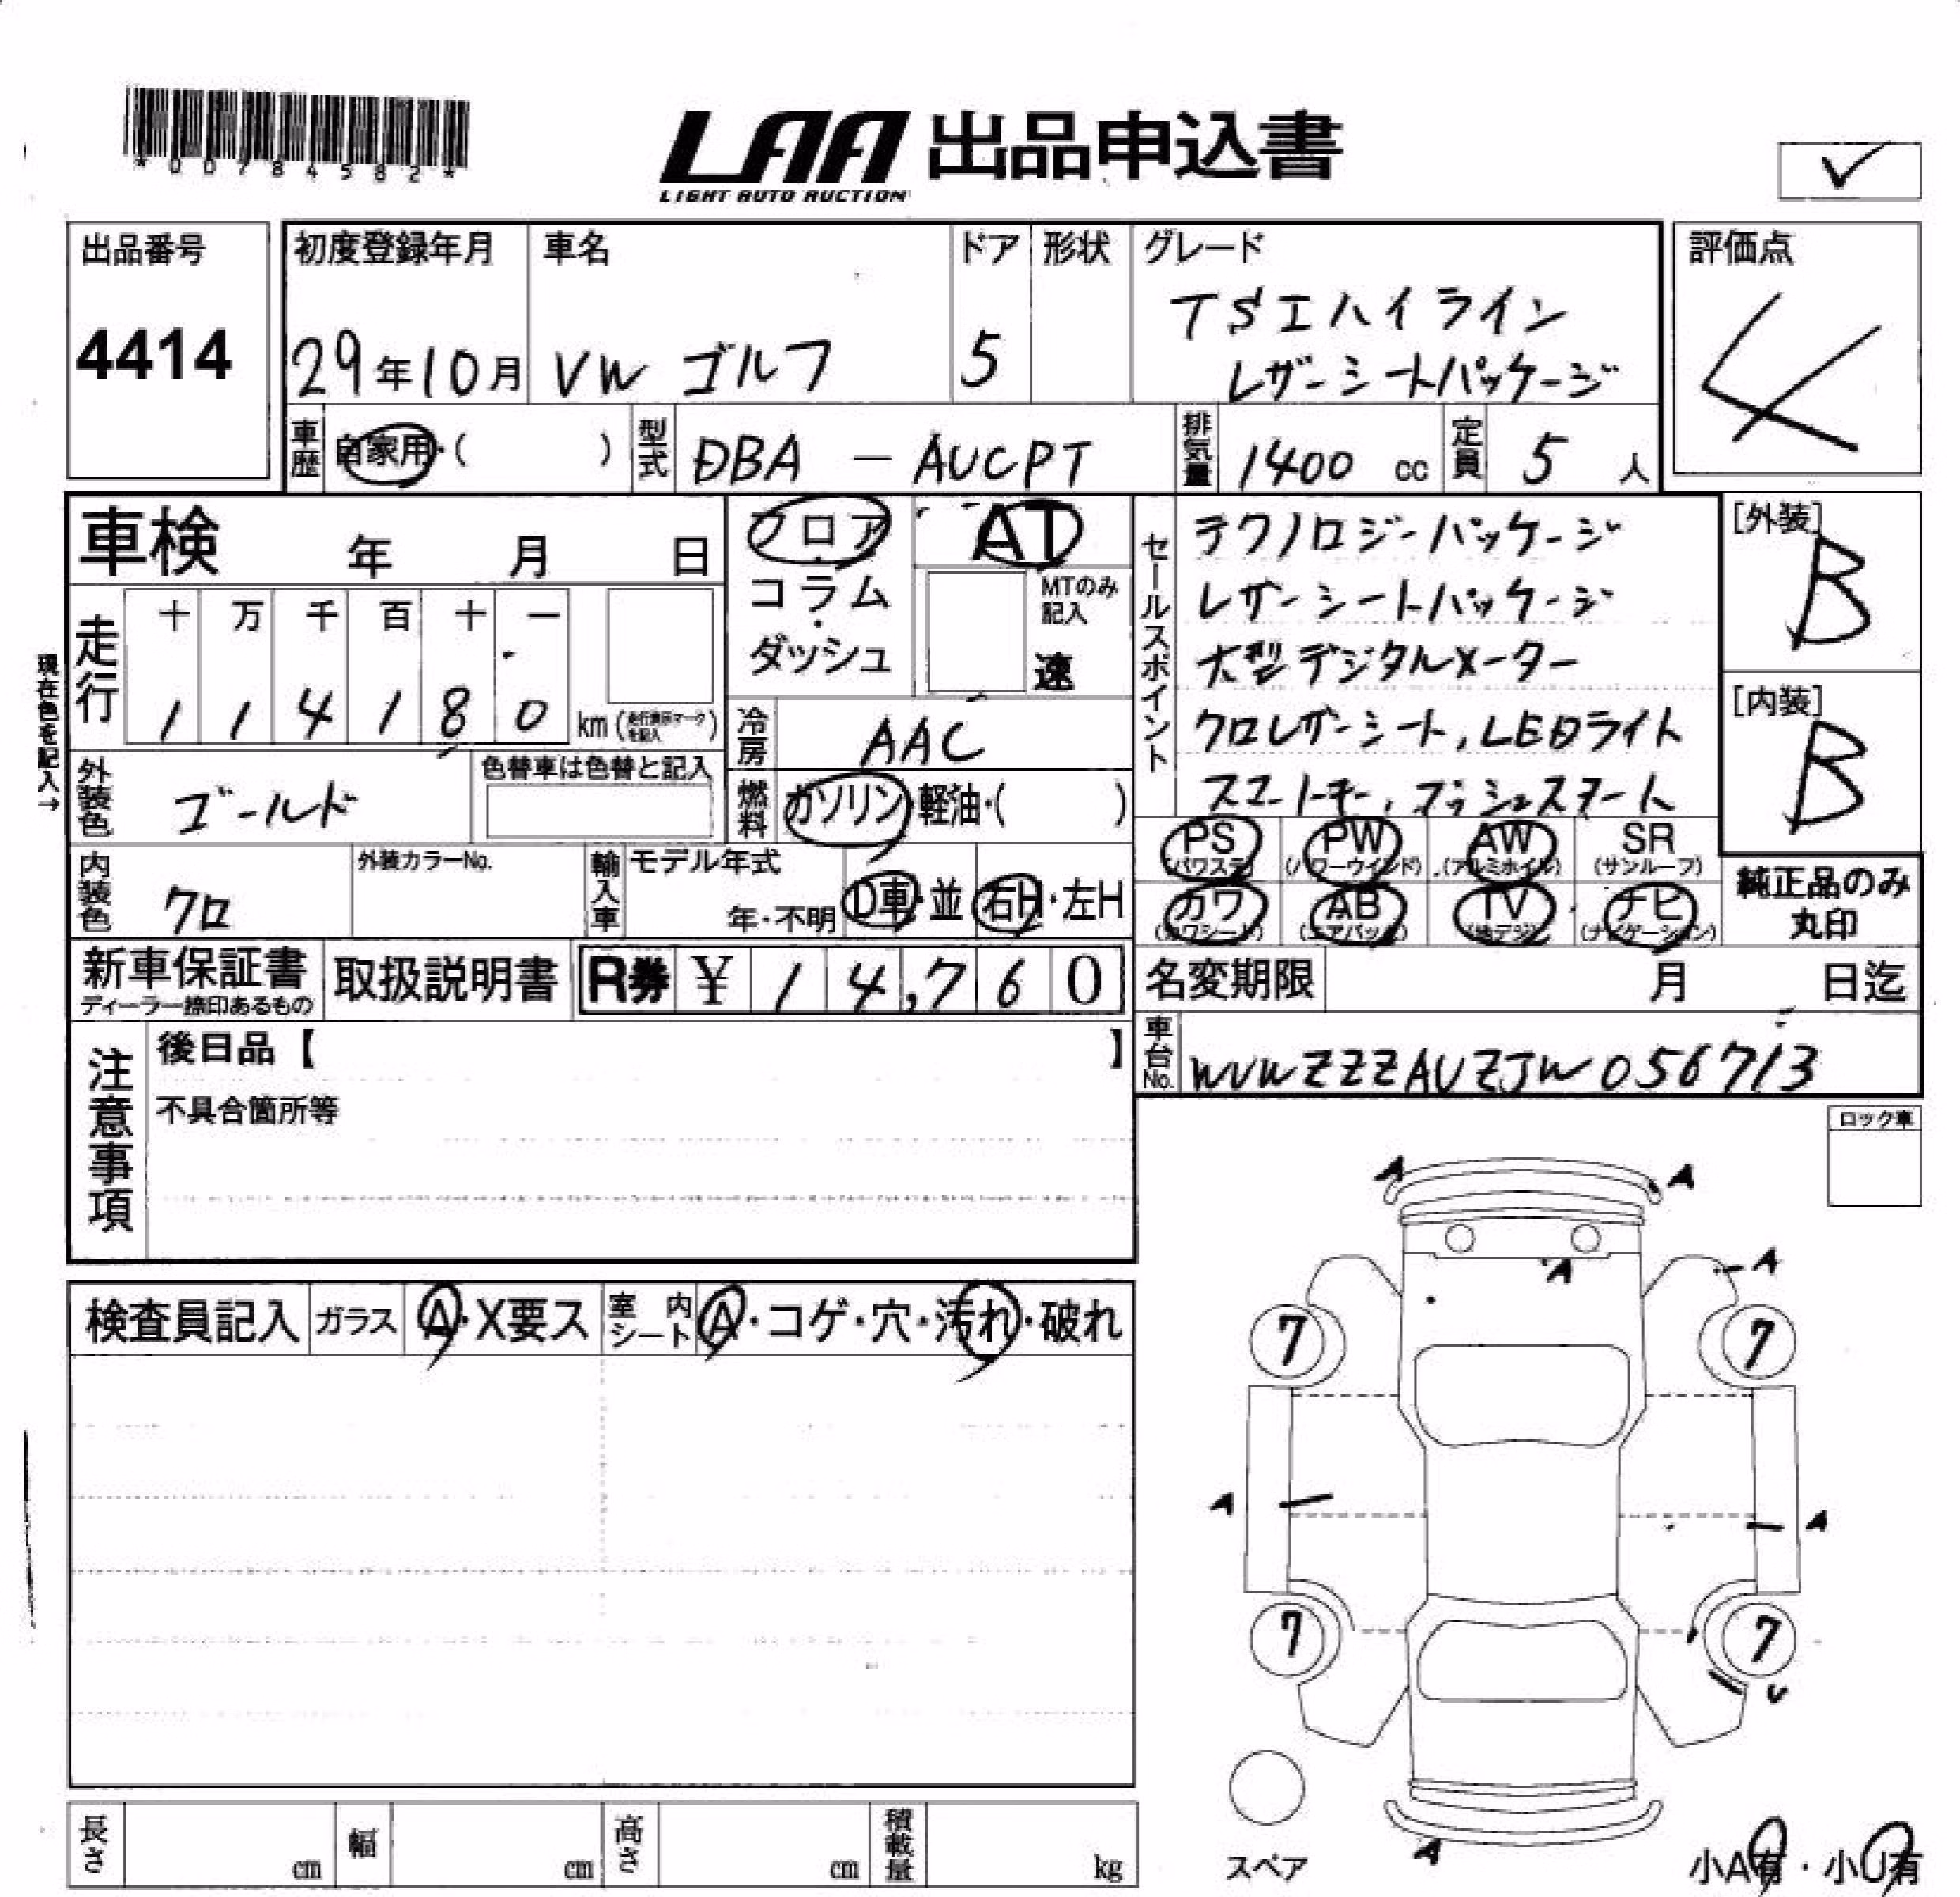 *00784582*
LAA 出品申込書
LIGHT AUTO AUCTION
出品番号
4414
初度登録年月
29年10月
車名
VW ゴルフ
ドア
5
形状
グレード
TSIハイライン
レザーシートパッケージ
評価点
4
車歴 自家用・( )
型式 DBA - AUCPT
排気量 1400 cc
定員 5 人
車検 年 月 日
フロア・コラム・ダッシュ
AT
MTのみ記入
速
セールスポイント
テクノロジーパッケージ
レザーシートパッケージ
大型デジタルメーター
クロレザーシート,LEDライト
スマートキー,プッシュスタート
[外装]
B
[内装]
B
現在色を記入→
走行
十 万 千 百 十 一
1 1 4 1 8 0 km (走行表示マークを記入)
冷房 AAC
外装色 ゴールド
色替車は色替と記入
燃料 ガソリン・軽油・( )
PS (パワステ)
PW (パワーウインド)
AW (アルミホイル)
SR (サンルーフ)
カワ (カワシート)
AB (エアバック)
TV (地デジ)
ナビ (ナビゲーション)
純正品のみ
丸印
内装色 クロ
外装カラーNo.
輸入車
モデル年式
年・不明
D車・並
右H・左H
新車保証書
ディーラー捺印あるもの
取扱説明書
R券 ¥ 14,760
名変期限 月 日迄
車台No. WVWZZZAUZJW056713
注意事項
後日品【 】
不具合箇所等
ロック車
検査員記入
ガラス A・X要ス
室内シート A・コゲ・穴・汚れ・破れ
A A
A A
7 7
A A
7 7
U
A
スペア
小A有・小U有
長さ cm
幅 cm
高さ cm
積載量 kg